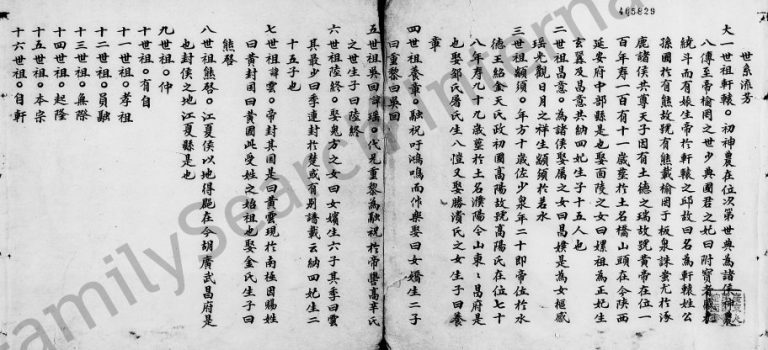 465829
世系流芳
大一世祖軒轅。初神農在位次第世典為諸侯神農
八傳至帝榆罔之世少典國君之妃曰附寶者感
繞斗而有娠生帝於軒轅之邱故曰名為軒轅姓公
孫國於有熊故號有熊載榆罔于板泉誅蚩尤於涿
鹿諸侯共尊天子因有土德之瑞故號黃帝在位一
百年寿一百有十一歲塟於土名橋山頭在今陕西
延安府中部縣是也娶西陵之女曰嫘祖為正妃生
玄囂及昌意共納四妃生子十五人也
二世祖昌意。為諸侯娶蜀之女曰昌媄是為女樞感
瑶光觀日月之祥生顓頊於若水
三世祖顓頊。年方十歲佐少泉年二十即帝位於水
德王紹金天氏政初國高陽故號高陽氏在位七十
八年寿九十九歲塟於土名濮陽今山東昌府是
也娶鄒氏屠氏生八愷又娶勝濆氏之女生子曰養
章
四世祖養章。融祝吁鴻鳴而作樂娶曰女嬌生二子
曰重黎曰吳回
五世祖吳回諱瑶。代兄重黎為融祝於帝嚳高辛氏
之世生子曰陸終
六世祖陸終。娶鬼方之女曰女嬪生六子其季曰雲
其最少曰季連封於楚或有别譜載云納四妃生二
十五子也
七世祖諱雲。帝封其國是曰黃雲現於南極因賜姓
曰黃封國曰黃國此受姓之始祖也娶金氏生子曰
熊啓
八世祖熊啓。江夏侯以地得麗在今胡廣武昌府是
也封侯之地江夏縣是也
九世祖。仲
十世祖。有自
十一世祖。孝祖
十二世祖。員融
十三世祖。無際
十四世祖。起隆
十五世祖。本宗
十六世祖。自軒
FamilySearch International